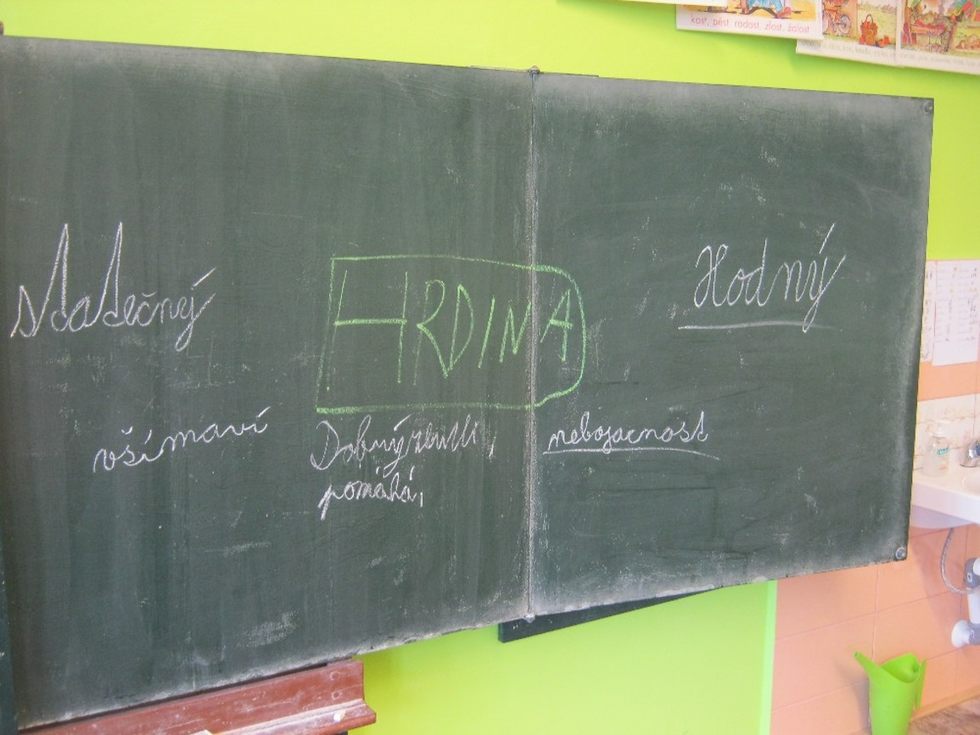 kost, pěst, radost, zlost, žalost
statečný
HRDINA
Hodný
všímaví
Dobrý
pomáhá,
nebojacnost